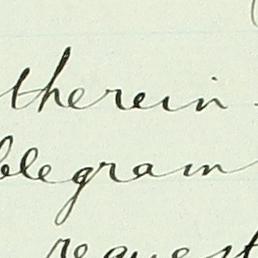 therein
blegram
request